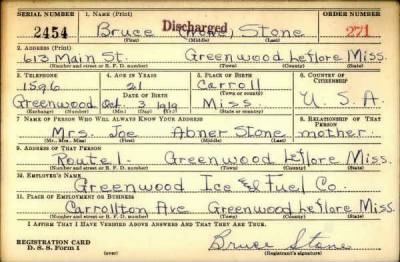 SERIAL NUMBER 1. NAME (Print) ORDER NUMBER
Discharged
2454 Bruce (None) Stone 271
(First) (Middle) (Last)
2. ADDRESS (Print)
613 Main St. Greenwood Leflore Miss.
(Number and street or R. F. D. number) (Town) (County) (State)
3. TELEPHONE 4. AGE IN YEARS 5. PLACE OF BIRTH 6. COUNTRY OF CITIZENSHIP
1596 21 Carroll
DATE OF BIRTH (Town or county)
Greenwood Oct. 3 1919 Miss. U. S. A.
(Exchange) (Number) (Mo.) (Day) (Yr.) (State or country)
7. NAME OF PERSON WHO WILL ALWAYS KNOW YOUR ADDRESS 8. RELATIONSHIP OF THAT PERSON
Mrs. Joe Abner Stone mother.
(Mr., Mrs., Miss) (First) (Middle) (Last)
9. ADDRESS OF THAT PERSON
Route 1- Greenwood Leflore Miss.
(Number and street or R. F. D. number) (Town) (County) (State)
10. EMPLOYER'S NAME
Greenwood Ice & Fuel Co.
11. PLACE OF EMPLOYMENT OR BUSINESS
Carrollton Ave Greenwood Leflore Miss.
(Number and street or R. F. D. number) (Town) (County) (State)
I AFFIRM THAT I HAVE VERIFIED ABOVE ANSWERS AND THAT THEY ARE TRUE.
REGISTRATION CARD Bruce Stone
D. S. S. Form 1 (over) (Registrant's signature)